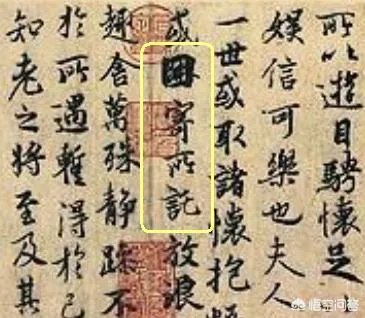 所以遊目騁懷足
娛信可樂也夫人
一世或取諸懷抱
或因寄所託放浪
趣舍萬殊静躁不
於所遇暫得於己
知老之將至及其
悟空问答